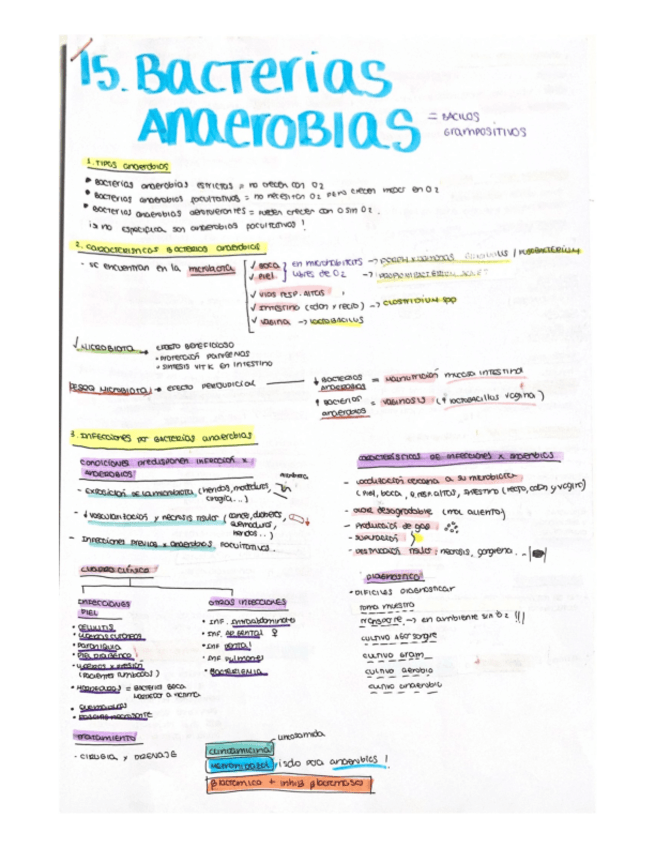 15. Bacterias
Anaerobias
= BACILOS
GRAMPOSITIVOS
1. TIPOS anaerobios
Bacterias anaerobias estrictas = no crecen con O2
Bacterias anaerobias facultativas = no necesitan O2 pero crecen mejor en O2
Bacterias anaerobias aerotolerantes = pueden crecer con o sin O2.
si no especifica son anaerobios facultativos!
2. Características Bacterias anaerobias
- se encuentran en la microbiota
✓ Boca
✓ Piel
en microhábitats
libres de O2
→ PORPHYROMONAS / FUSOBACTERIUM
→ PROPIONIBACTERIUM
✓ VIAS RESP. ALTAS
✓ INTESTINO (colon y recto) → CLOSTRIDIUM spp
✓ VAGINA → LACTOBACILLUS
MICROBIOTA → EFECTO BENEFICIOSO
• PROTECCIÓN PATÓGENAS
• SINTESIS VIT K EN INTESTINO
MICROBIOTA → EFECTO PERJUDICIAL
↓ BACTERIAS
anaerobias
= mucosa intestinal
↑ BACTERIAS
anaerobias
= VAGINOSIS (↑ lactobacillus vagina)
3. INFECCIONES por BACTERIAS anaerobias
CONDICIONES predisponen INFECCIÓN x
ANAEROBIOS
- EXPOSICIÓN DE LA microbiota (heridas, mordeduras,
cirugía...)
- ↓ vascularización y necrosis tisular (cáncer, diabetes,
quemaduras,
heridas..)
- Infecciones previas x anaerobios facultativos.
CARACTERÍSTICAS DE INFECCIONES x anaerobios
- Localización cercana a su microbiota
(PIEL, boca, R. RESP. ALTOS, intestino (recto, colon y vagina)
- OLOR desagradable (mal aliento)
- Producción de gas
- SUPURACIÓN
- DESTRUCCIÓN tisular: necrosis, gangrena...
CUADRO CLÍNICO
INFECCIONES
PIEL
• CELULITIS
• ULCERAS CUTÁNEAS
• PARONIQUIA
• PIE DIABÉTICO
• ULCERAS x PRESIÓN
(pacientes tumbados)
• MORDEDURAS = BACTERIAS BOCA
• QUEMADURAS
OTRAS INFECCIONES
• INF. intraabdominales
• INF. AP. GENITAL ♀
• INF DENTAL
• INF pulmones
• BACTERIEMIA
DIAGNÓSTICO
• DIFÍCILES DIAGNOSTICAR
TOMA muestra
TRANSPORTE → en ambiente sin O2 !!!
cultivo AGAR sangre
cultivo GRAM
cultivo aerobio
cultivo anaerobio
TRATAMIENTO
- CIRUGÍA y DRENAJE
Lincosamida
Clindamicina
Metronidazol → solo para anaerobios!
βlactámico + inhib βlactamasas